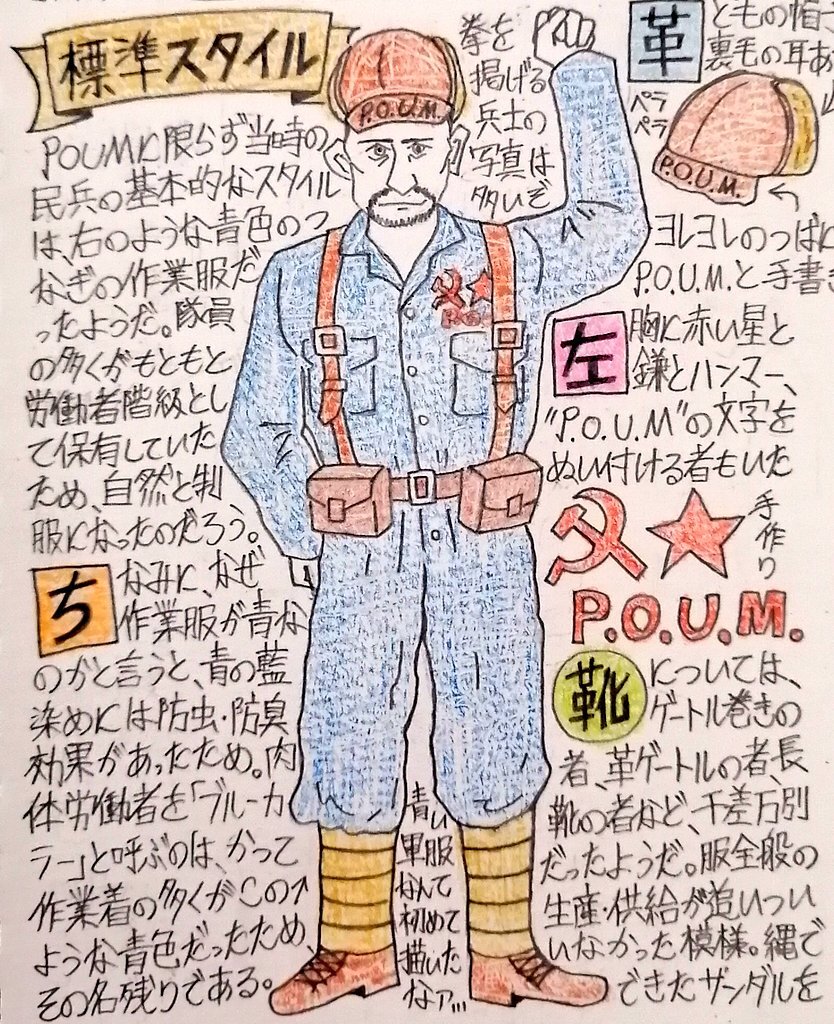 標準スタイル
P.O.U.M.
POUMに限らず当時の
民兵の基本的なスタイル
は、右のような青色のつ
なぎの作業服だ
ったようだ。隊員
の多くがもともと
労働者階級とし
て保有していた
ため、自然と制
服になったのだろう。
ちなみに、なぜ
作業服が青な
のかと言うと、青の藍
染めには防虫・防臭
効果があったため。肉
体労働者を「ブルーカ
ラー」と呼ぶのは、かつて
作業着の多くがこの↑
ような青色だったため、
その名残りである。
拳を
掲げる
兵士の
写真は
多いぞ
革ともの帽子
裏毛の耳あ
ペラ
ペラ
P.O.U.M.
ヨレヨレのつばに
P.O.U.M.と手書き
左胸に赤い星と
鎌とハンマー、
"P.O.U.M"の文字を
ぬい付ける者もいた
手作り
P.O.U.M.
靴については、
ゲートル巻きの
者、革ゲートルの者、長
靴の者など、千差万別
だったようだ。服全般の
生産・供給が追いつい
いなかった模様。縄で
できたサンダルを
青い
軍服
なんて
初めて
描いた
なァ…